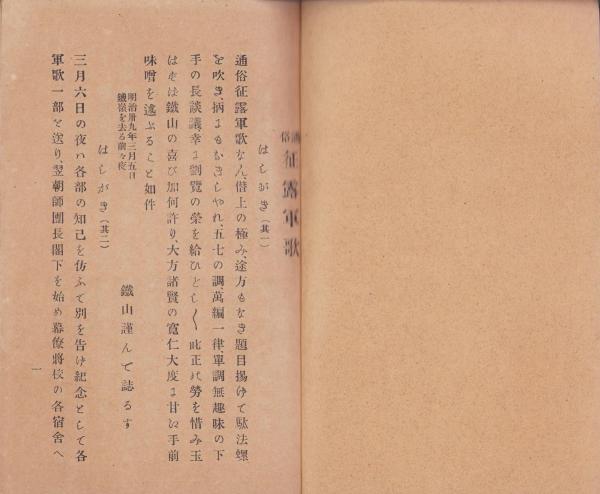 通俗
征露軍歌
はしがき（其一）
通俗征露軍歌なん、僭上の極み、途方もなき題目揚けて駄法螺
を吹き、柄よもなきしやれ、五七の調、萬編一律、單調無趣味の下
手の長談議、幸よ劉覽の榮を給ひとし〳〵叱正れ勞を惜み玉
はずは鐵山の喜び加何許り、大方諸賢の寛仁大度よ甘い手前
味噌を述ぶること如件
明治卅九年三月五日
鐵嶺を去る前々夜
鐵山謹んで誌るす
はしがき（其二）
三月六日の夜ハ各部の知己を仿ふて別を告け紀念として各
軍歌一部を送り、翌朝師團長閣下を始め幕僚將校の各宿舍へ
一